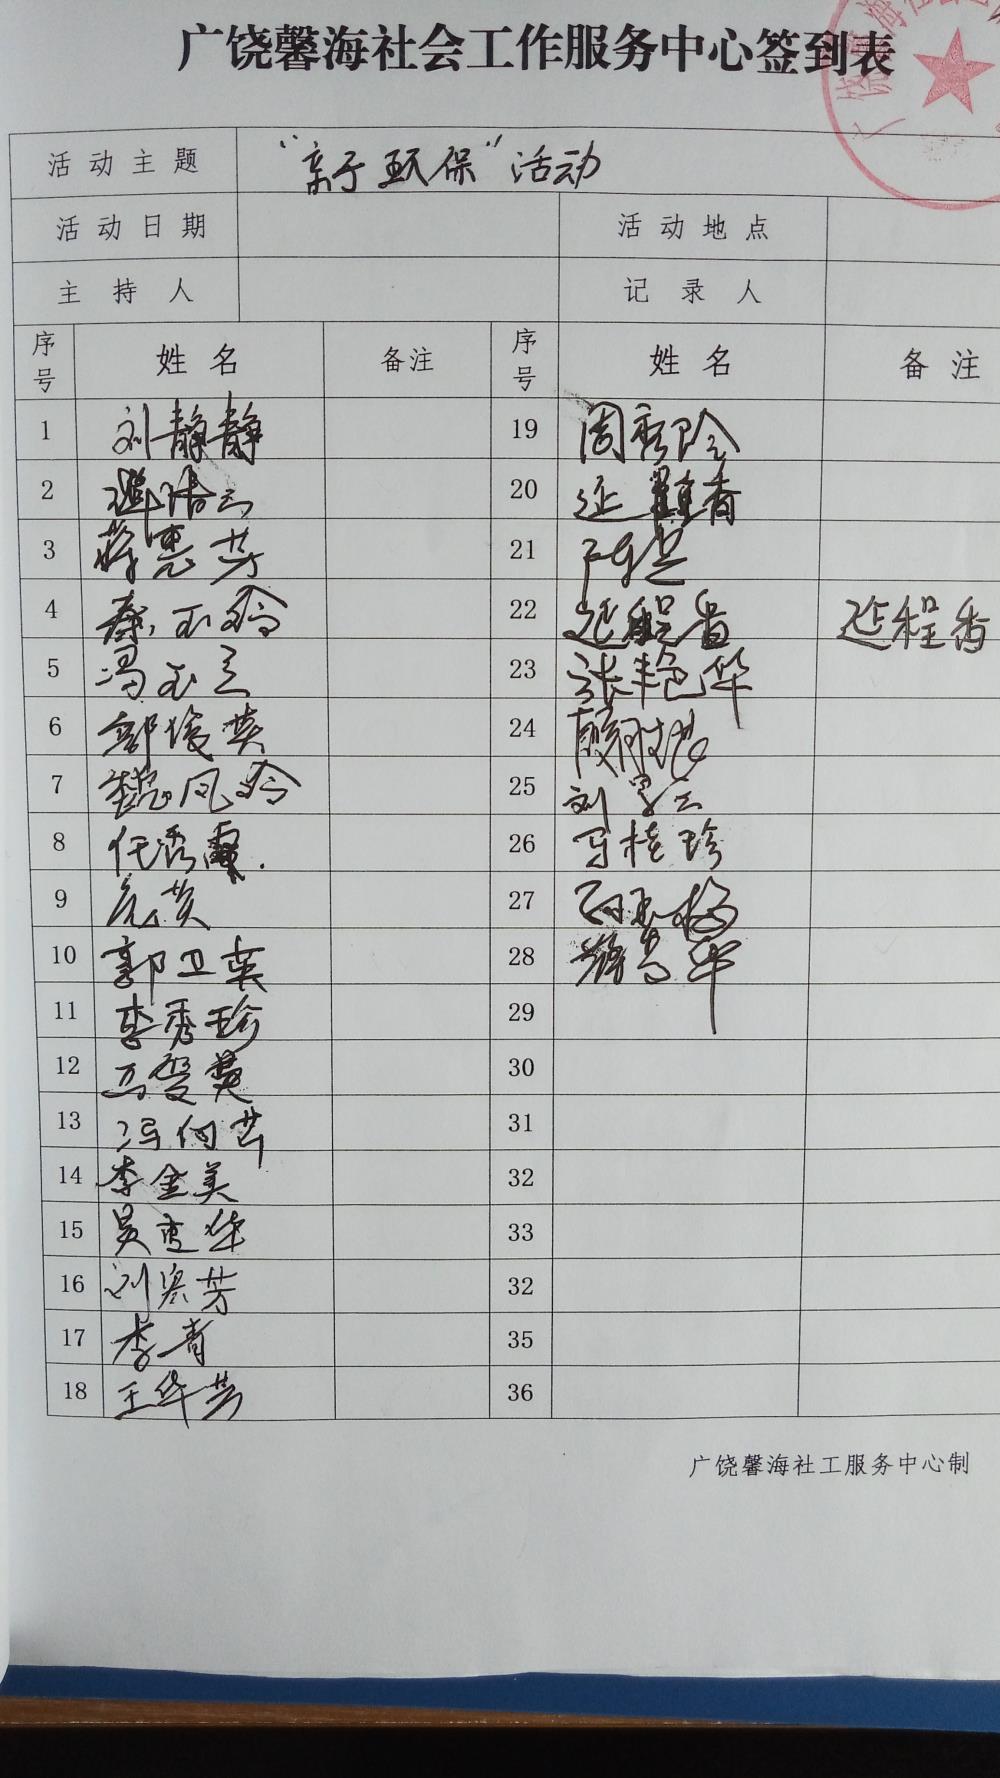 广饶馨海社会工作服务中心签到表
活动主题 “亲子环保”活动
活动日期 活动地点
主持人 记录人
序号 姓名 备注 序号 姓名 备注
1 刘静静 19 周秀玲
2 20
3 蒋惠芳 21
4 秦玉玲 22 延程香 延程香
5 冯玉兰 23 张艳华
6 郭俊英 24 颜胜
7 魏凤玲 25 刘
8 任秀霞 26 马桂珍
9 英 27 玉梅
10 郭卫英 28 华
11 李秀珍 29
12 马爱英 30
13 冯何芹 31
14 李金美 32
15 吴建华 33
16 刘宏芳 32
17 李青 35
18 王华芳 36
广饶馨海社工服务中心制